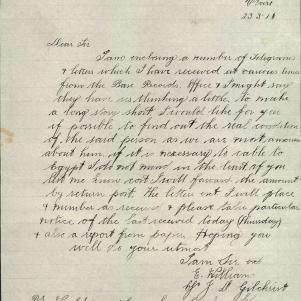 23.3.16
Dear Sir
I am enclosing a number of Telegrams
& letters which I have received at various times
from the Base Records Office & I might say
they have us thinking a little, to make
a long story short I would like for you
if possible to find out the real condition
of the said person as we are most anxious
about him, if it is necessary to cable to
Egypt I do not mind in the least if you
let me know cost I will forward the amount
by return post. The letters etc I will place
a number as received & please take particular
notice of the last received today (Thursday)
& also a report from paper. Hoping you
will do your utmost
I am Sir etc
E. William
c/o J. St Gilchrist